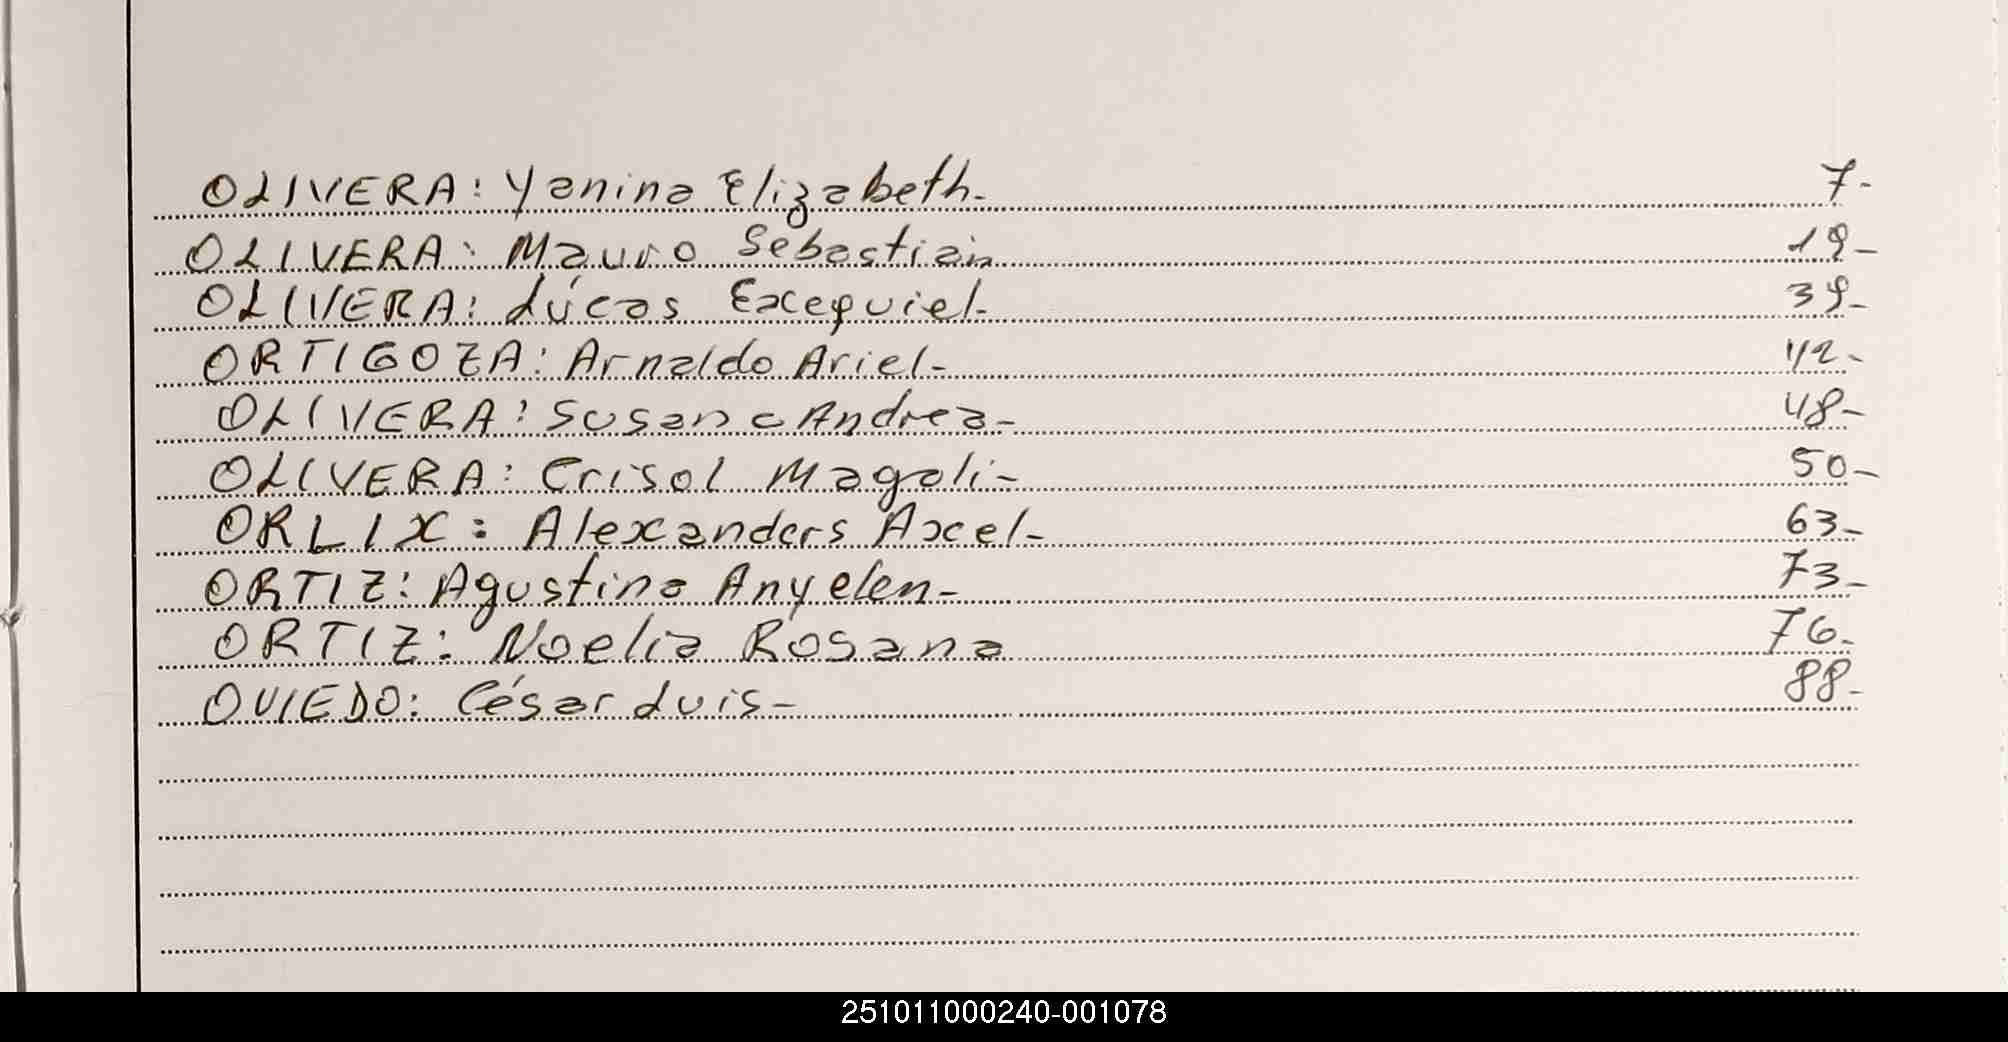 OLIVERA: Yanina Elizabeth- 7-
OLIVERA: Mauro Sebastián 19-
OLIVERA: Lúcas Excequiel- 39-
ORTIGOZA: Arnaldo Ariel- 42-
OLIVERA: Susana Andrea- 48-
OLIVERA: Crisol Magali- 50-
ORLIX: Alexanders Axel- 63-
ORTIZ: Agustina Anyelen- 73-
ORTIZ: Noelia Rosana 76-
OVIEDO: César Luis- 88-
251011000240-001078